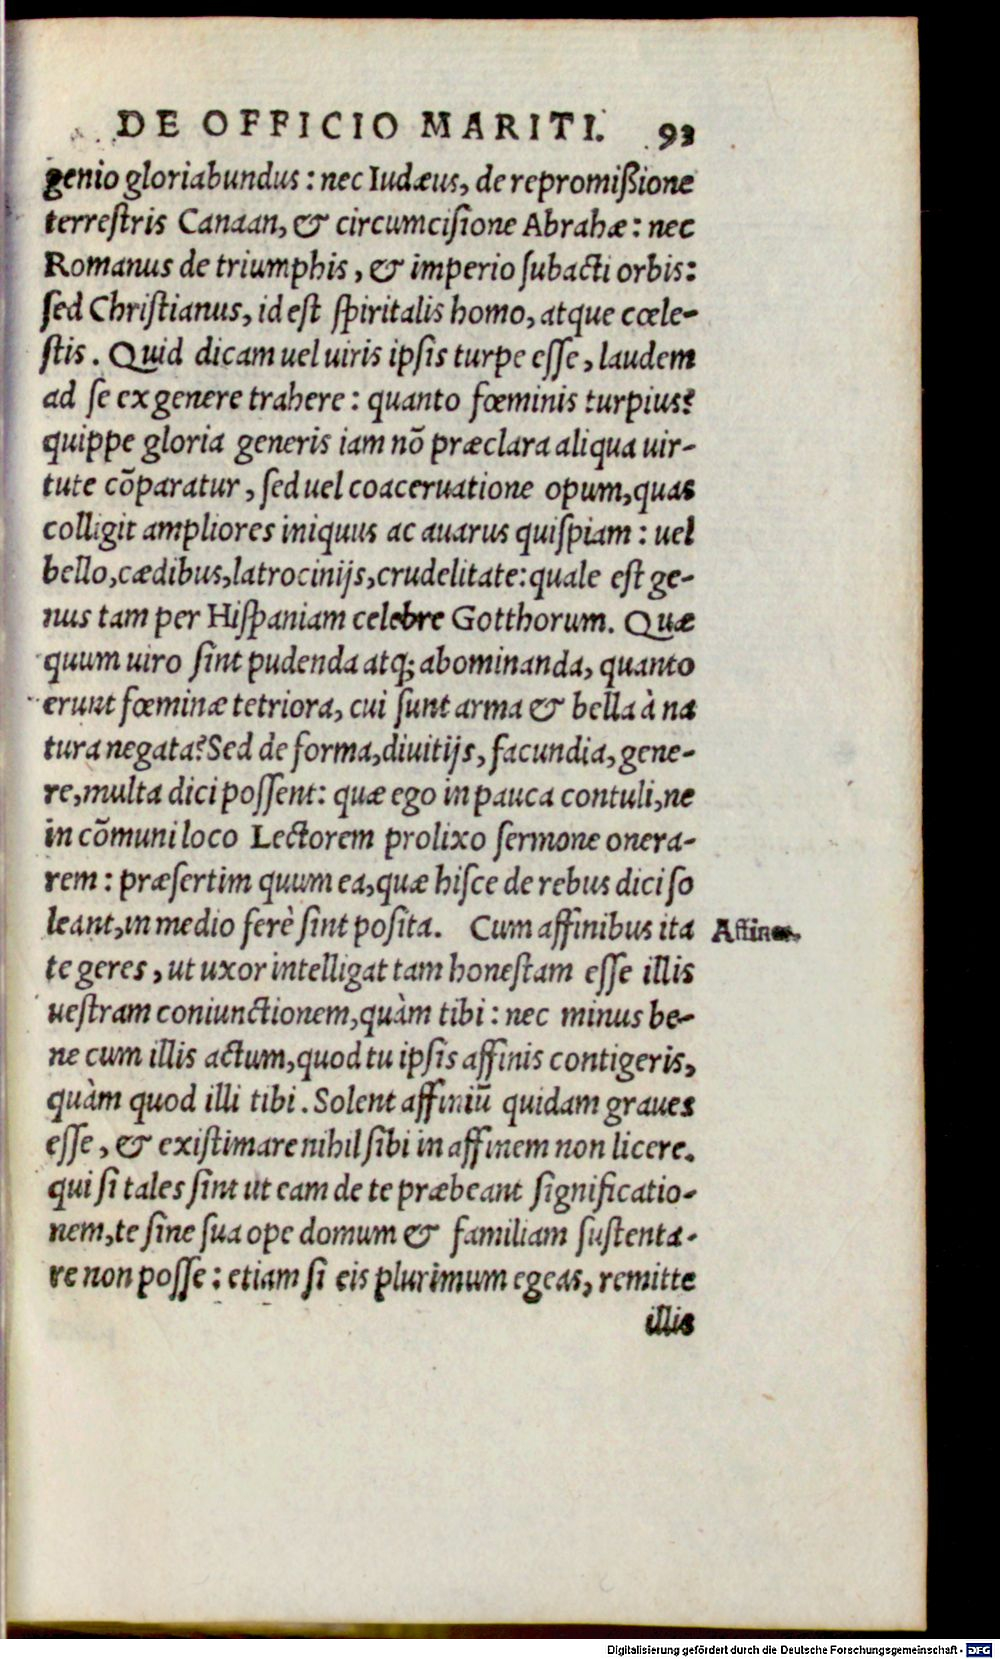 DE OFFICIO MARITI. 93
genio gloriabundus : nec Iudæus, de repromißione
terreſtris Canaan, & circumciſione Abrahæ : nec
Romanus de triumphis, & imperio ſubacti orbis:
ſed Chriſtianus, id eſt ſpiritalis homo, atque cœle-
ſtis. Quid dicam uel uiris ipſis turpe eſſe, laudem
ad ſe ex genere trahere : quanto fœminis turpius?
quippe gloria generis iam nõ præclara aliqua uir-
tute cõparatur, ſed uel coaceruatione opum, quas
colligit ampliores iniquus ac auarus quiſpiam : uel
bello, cædibus, latrocinijs, crudelitate: quale eſt ge-
nus tam per Hiſpaniam celebre Gotthorum. Quæ
quum uiro ſint pudenda atq; abominanda, quanto
erunt fœminæ tetriora, cui ſunt arma & bella à na
tura negata? Sed de forma, diuitijs, facundia, gene-
re, multa dici poſſent: quæ ego in pauca contuli, ne
in cõmuni loco Lectorem prolixo ſermone onera-
rem : præſertim quum ea, quæ hiſce de rebus dici ſo
leant, in medio ferè ſint poſita. Cum affinibus ita
Affines.
te geres, ut uxor intelligat tam honeſtam eſſe illis
ueſtram coniunctionem, quàm tibi : nec minus be-
ne cum illis actum, quod tu ipſis affinis contigeris,
quàm quod illi tibi. Solent affiniũ quidam graues
eſſe, & exiſtimare nihil ſibi in affinem non licere.
qui ſi tales ſint ut eam de te præbeant ſignificatio-
nem, te ſine ſua ope domum & familiam ſuſtenta-
re non poſſe : etiam ſi eis plurimum egeas, remitte
illis
Digitalisierung gefördert durch die Deutsche Forschungsgemeinschaft - DFG